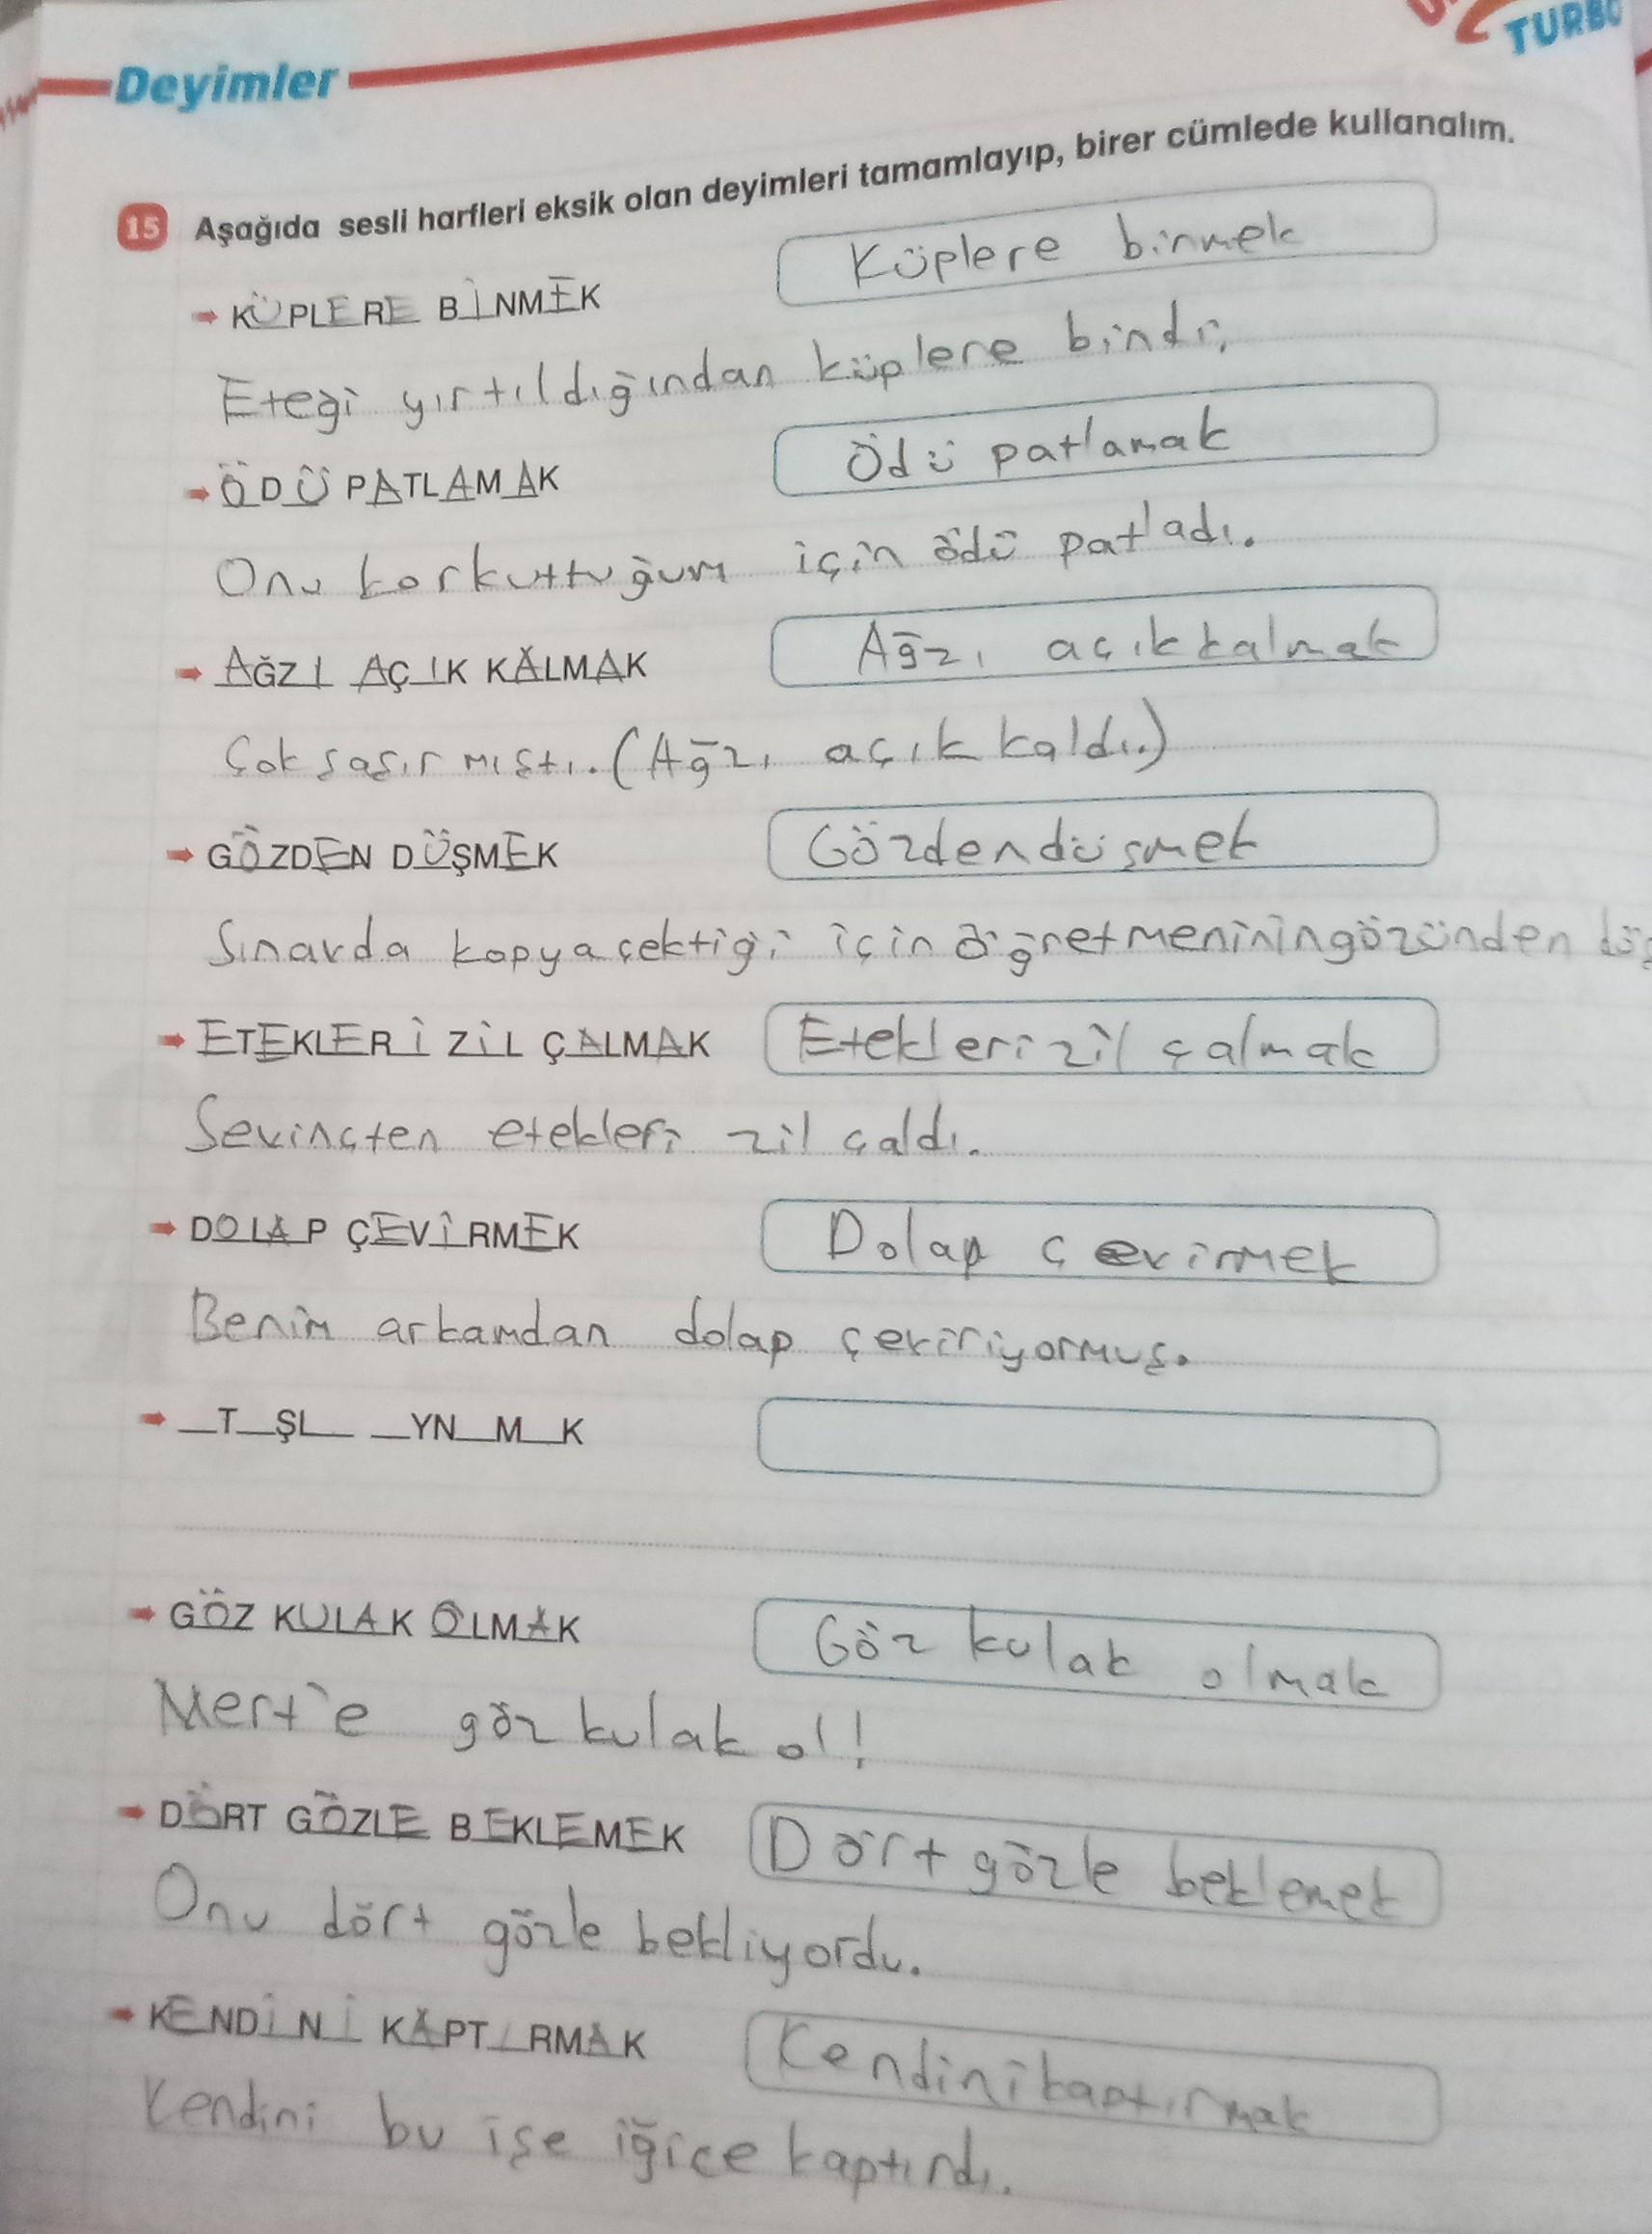 TURBO
Deyimler
15 Aşağıda sesli harfleri eksik olan deyimleri tamamlayıp, birer cümlede kullanalım.
KÜPLERE BİNMEK Küplere binmek
Eteği yırtıldığından küplere bindi,
ÖDÜ PATLAMAK Ödü patlamak
Onu korkuttuğum için ödü patladı.
AĞZI AÇIK KALMAK Ağzı açık kalmak
Çok şaşırmıştı. (Ağzı açık kaldı.)
GÖZDEN DÜŞMEK Gözden düşmek
Sınavda kopya çektiği için öğretmeninin gözünden
ETEKLERİ ZİL ÇALMAK Etekleri zil çalmak
Sevinçten etekleri zil çaldı.
DOLAP ÇEVİRMEK Dolap çevirmek
Benim arkamdan dolap çeviriyormuş.
_T_ŞL_ _YN_M_K
GÖZ KULAK OLMAK Göz kulak olmak
Mert'e göz kulak ol!
DÖRT GÖZLE BEKLEMEK Dört gözle beklemek
Onu dört gözle bekliyordu.
KENDİNİ KAPTIRMAK Kendini kaptırmak
Kendini bu işe iğice kaptırdı.